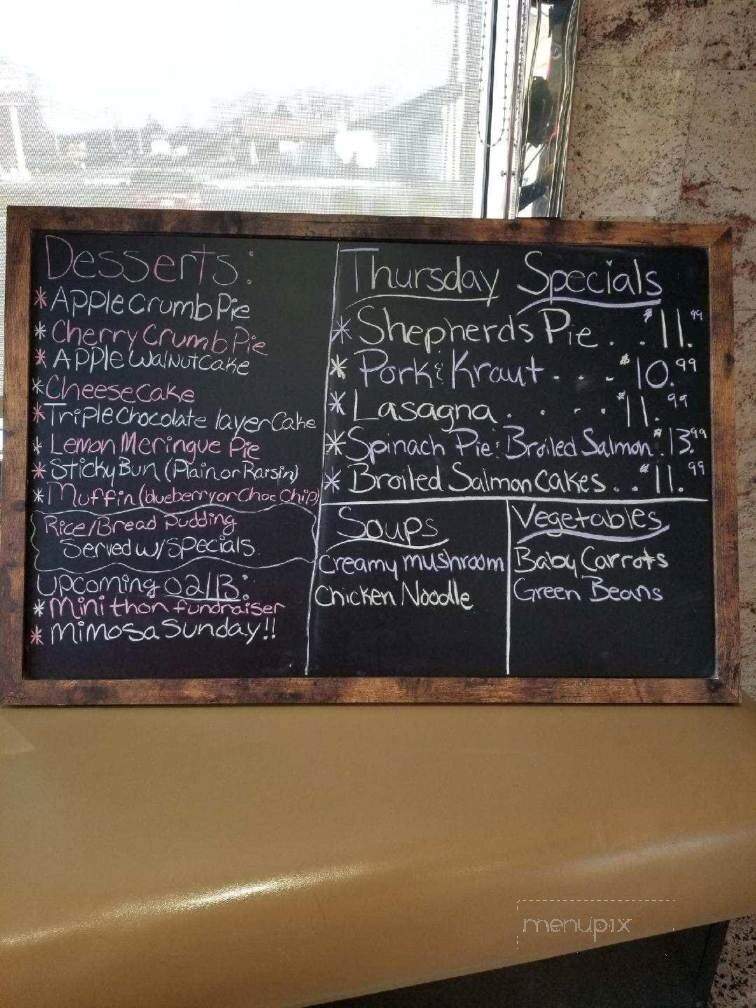 Desserts:
* Apple Crumb Pie
* Cherry Crumb Pie
* Apple Walnut Cake
* Cheesecake
* Triple Chocolate layer Cake
* Lemon Meringue Pie
* Sticky Bun (Plain or Raisin)
* Muffin (blueberry or Choc Chip)
Rice/Bread Pudding
Served w/ Specials
Upcoming 02/13:
* Mini thon fundraiser
* Mimosa Sunday!!
Thursday Specials
* Shepherds Pie . . $11.99
* Pork & Kraut - - - $10.99
* Lasagna . . . . $11.99
* Spinach Pie & Broiled Salmon $13.99
* Broiled Salmon Cakes . . $11.99
Soups
Creamy mushroom
Chicken Noodle
Vegetables
Baby Carrots
Green Beans
menupix